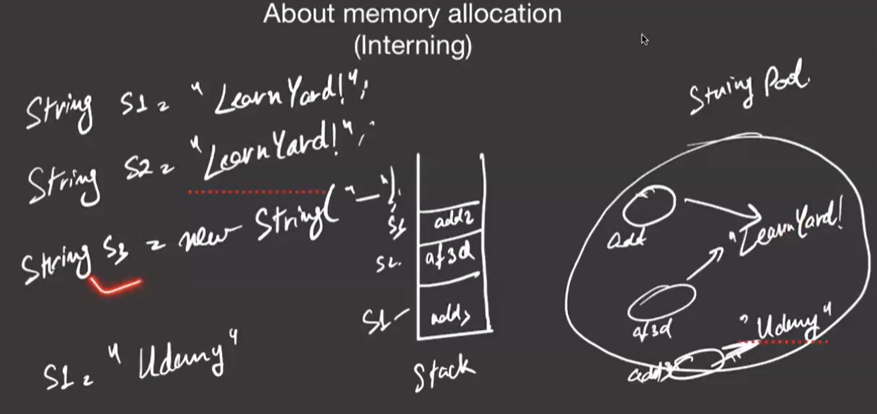 About memory allocation
(Interning)
String S1 = "LearnYard!";
String S2 = "LearnYard!";
String S3 = new String("—");
S1 = "Udemy"
S3 add2
S2 af3d
S1 add3
Stack
String Pool
add
"LearnYard!
af3d
"Udemy"